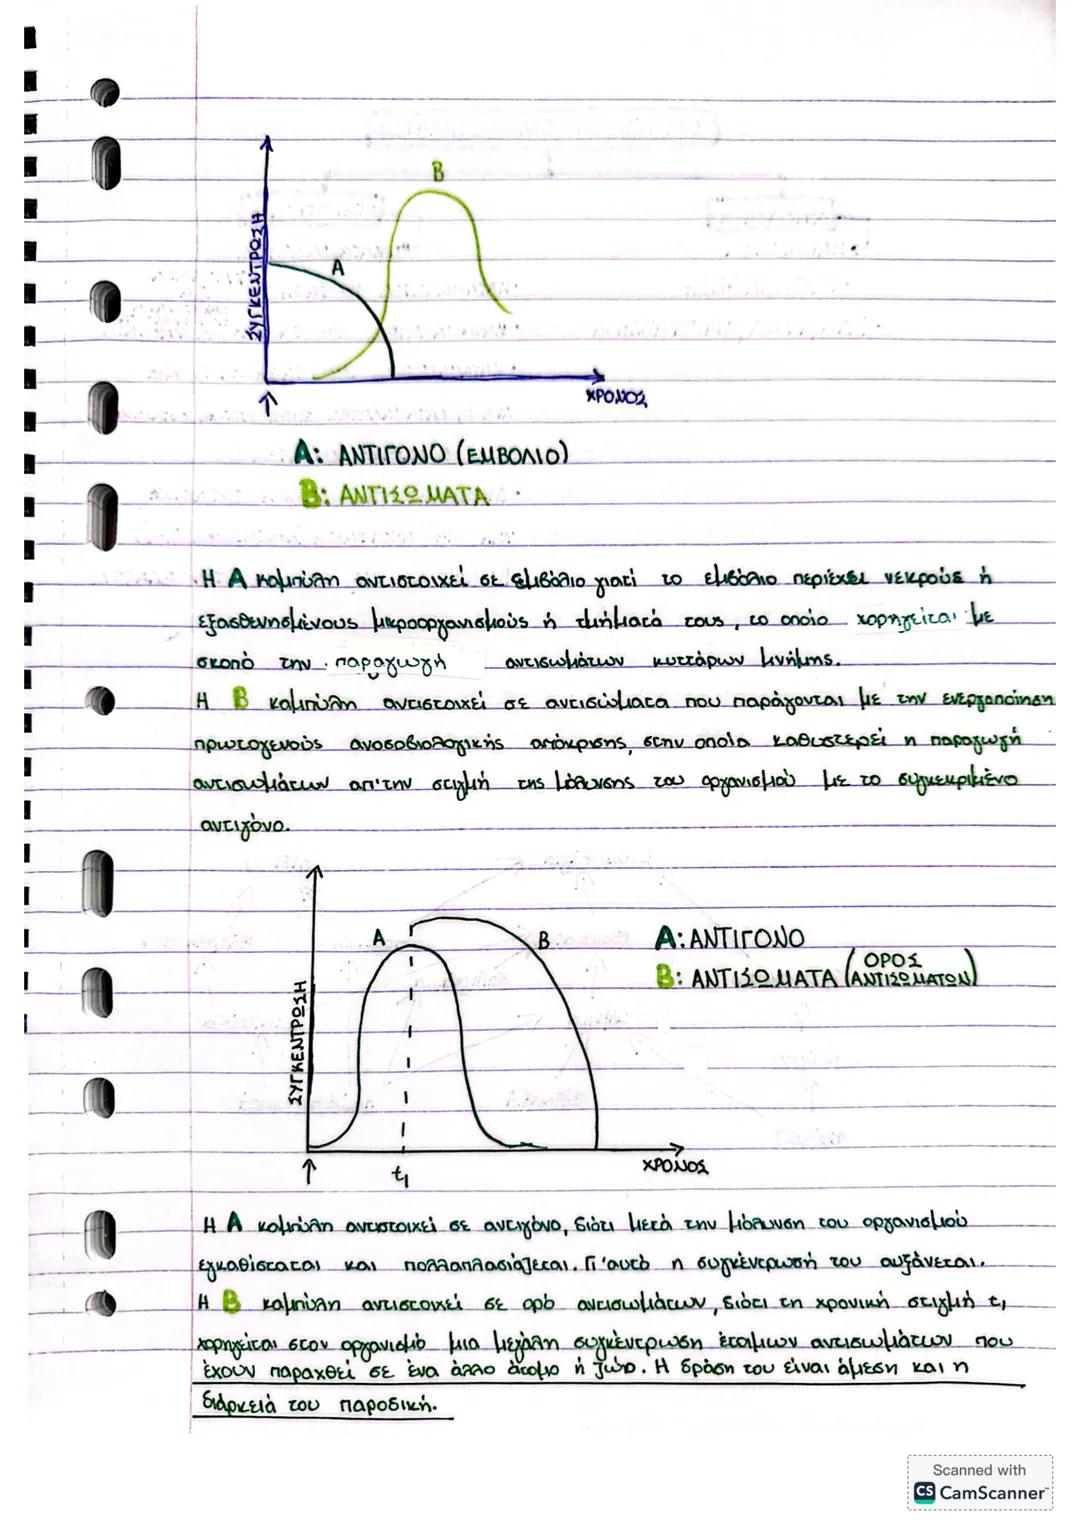 B
A
ΣΥΓΚΕΝΤΡΩΣΗ
ΧΡΟΝΟΣ
A: ΑΝΤΙΓΟΝΟ (ΕΜΒΟΛΙΟ)
B: ΑΝΤΙΣΩΜΑΤΑ
Η Α καμπύλη αντιστοιχεί σε εμβόλιο γιατί το εμβόλιο περιέχει νεκρούς ή
εξασθενημένους μικροοργανισμούς ή τμήματά τους, το οποίο χορηγείται με
σκοπό την παραγωγή αντισωμάτων κυττάρων μνήμης.
Η Β καμπύλη αντιστοιχεί σε αντισώματα που παράγονται με την ενεργοποίηση
πρωτογενούς ανοσοβιολογικής απόκρισης, στην οποία καθυστερεί η παραγωγή
αντισωμάτων απ'την στιγμή της μόλυνσης του οργανισμού με το συγκεκριμένο
αντιγόνο.
A
B
A: ΑΝΤΙΓΟΝΟ
B: ΑΝΤΙΣΩΜΑΤΑ (ΟΡΟΣ ΑΝΤΙΣΩΜΑΤΩΝ)
ΣΥΓΚΕΝΤΡΩΣΗ
t1
ΧΡΟΝΟΣ
Η Α καμπύλη αντιστοιχεί σε αντιγόνο, διότι μετά την μόλυνση του οργανισμού
εγκαθίσταται και πολλαπλασιάζεται. Γι'αυτό η συγκέντρωσή του αυξάνεται.
Η Β καμπύλη αντιστοιχεί σε ορό αντισωμάτων, διότι τη χρονική στιγμή t1
χορηγείται στον οργανισμό μια μεγάλη συγκέντρωση έτοιμων αντισωμάτων που
έχουν παραχθεί σε ένα άλλο άτομο ή ζώο. Η δράση του είναι άμεση και η
διάρκειά του παροδική.
Scanned with
CS CamScanner